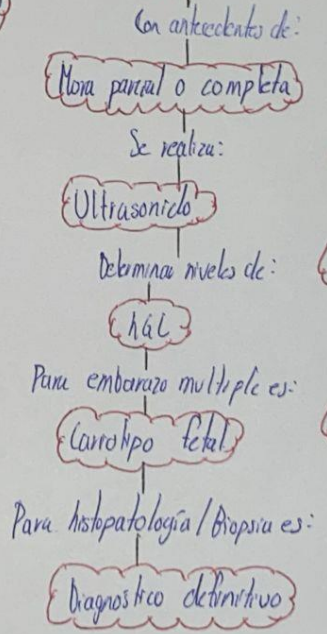 Con antecedentes de:
Mora parcial o completa
Se realiza:
Ultrasonido
Determinar niveles de:
hGC
Para embarazo multiple es:
Carrotipo fetal
Para histopatología/Biopsia es:
Diagnostico definitivo